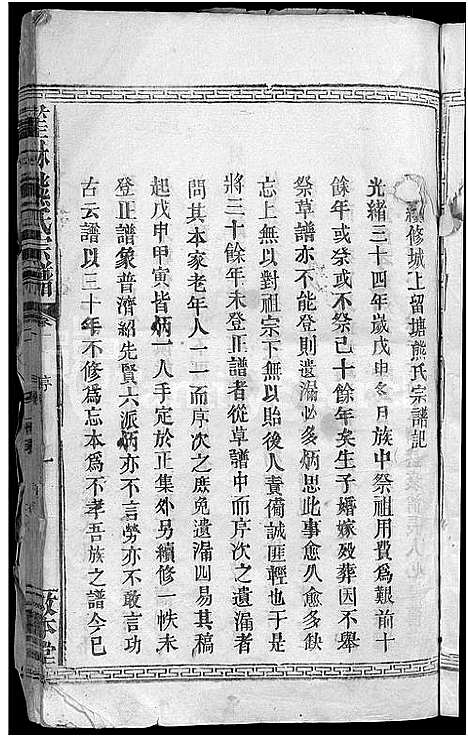 續修城上留塘熊氏宗譜記
光緒三十四年歲戊申冬日族中祭祖用費爲艱前十
餘年或祭或不祭已十餘年矣生子婚嫁歿葬因不舉
祭草譜亦不能登則遺漏必多炳思此事愈久愈多缺
忘上無以對祖宗下無以貽後人責備誠匪輕也于是
將三十餘年未登正譜者從草譜中而序次之遺漏者
問其本家老年人一一而序次之庶免遺漏四易其稿
起戊申甲寅皆炳一人手定於正集外另續修一帙未
登正譜象普濟紹先賢六派炳亦不言勞亦不敢言功
古云譜以三十年不修爲忘本爲不孝吾族之譜今已
熊氏宗譜
卷
序
一
敦本堂